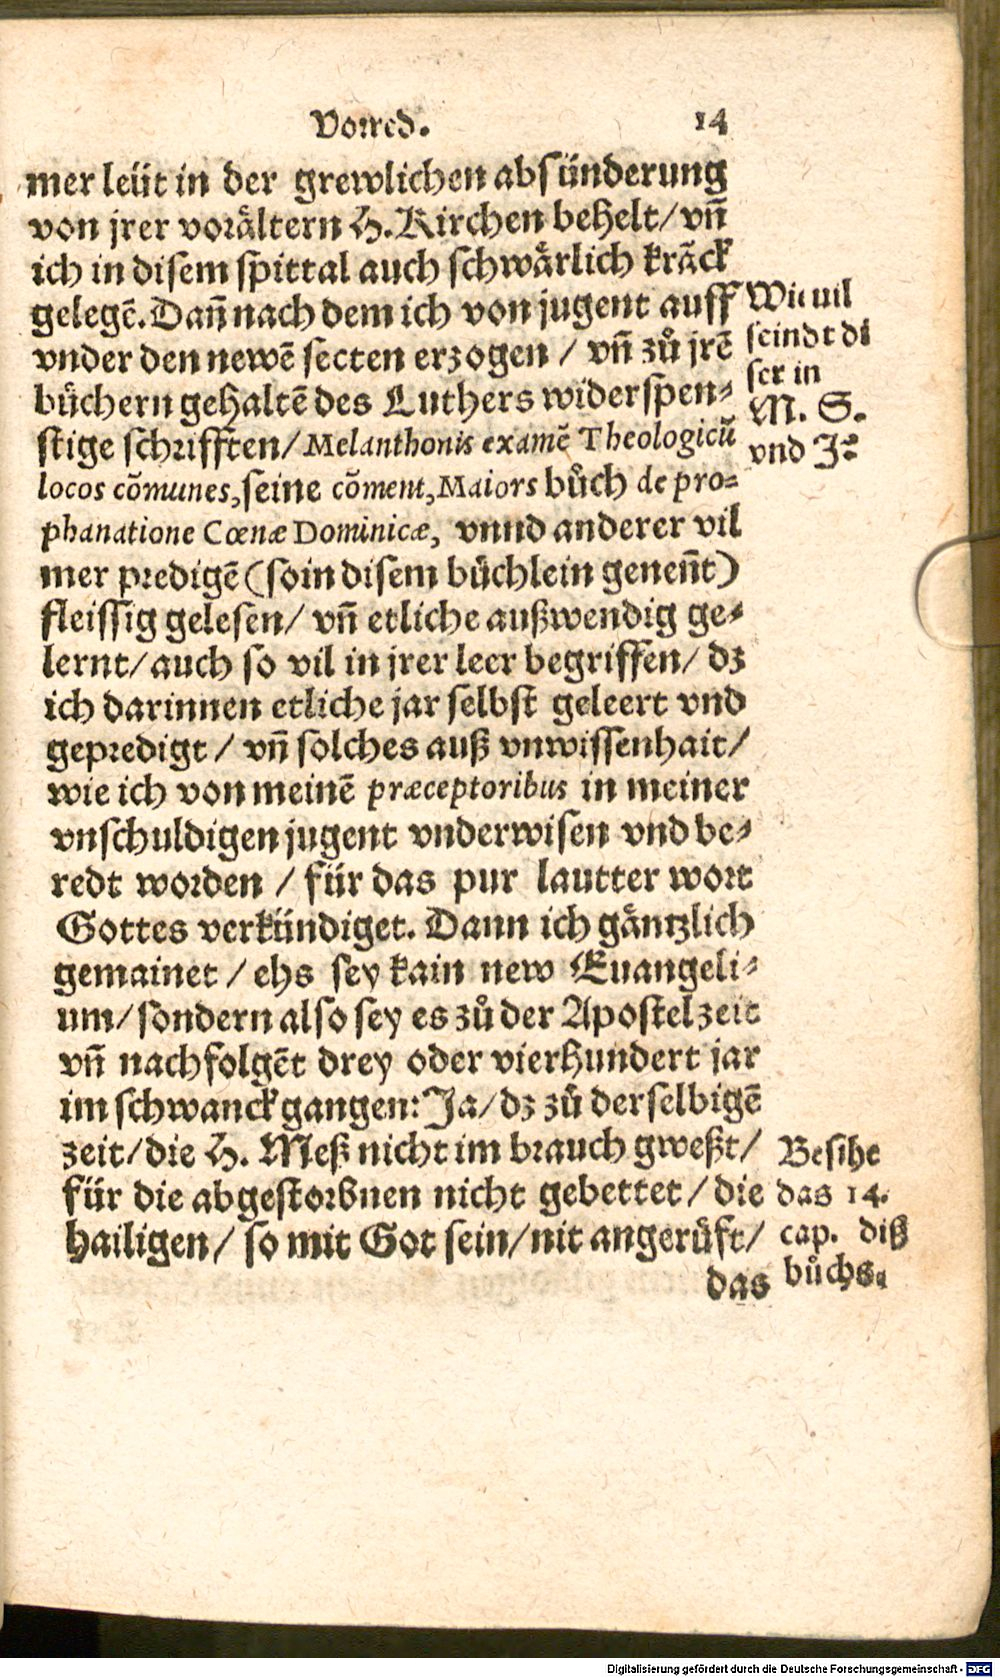 Vorred. 14
mer leüt in der grewlichen absünderung
von jrer vorältern H. Kirchen behelt/ vñ
ich in disem spittal auch schwårlich krãck
gelegẽ. Dañ nach dem ich von jugent auff
vnder den newẽ secten erzogen / vñ zů jrẽ
bůchern gehaltẽ des Luthers widerspen-
stige schrifften/ Melanthonis examẽ Theologicũ
locos cõmunes, seine cõment, Maiors bůch de pro-
phanatione Cœnæ Dominicæ, vnnd anderer vil
mer predigẽ (so in disem bůchlein geneñt)
fleissig gelesen/ vñ etliche außwendig ge-
lernt/ auch so vil in jrer leer begriffen/ dz
ich darinnen etliche jar selbst geleert vnd
gepredigt / vñ solches auß vnwissenhait/
wie ich von meinẽ præceptoribus in meiner
vnschuldigen jugent vnderwisen vnd be-
redt worden / für das pur lautter wort
Gottes verkündiget. Dann ich gäntzlich
gemainet / ehs sey kain new Euangeli-
um/ sondern also sey es zů der Apostel zeit
vñ nachfolgẽt drey oder vierhundert jar
im schwanck gangen: Ja/ dz zů derselbigẽ
zeit/ die H. Meß nicht im brauch gweßt/
für die abgestorbnen nicht gebettet / die
hailigen/ so mit Got sein/ nit angerůft/
das
Wie uil
seindt di
ser in
M. S.
vnd J:
Besihe
das 14.
cap. diß
bůchs.
Digitalisierung gefördert durch die Deutsche Forschungsgemeinschaft - DFG